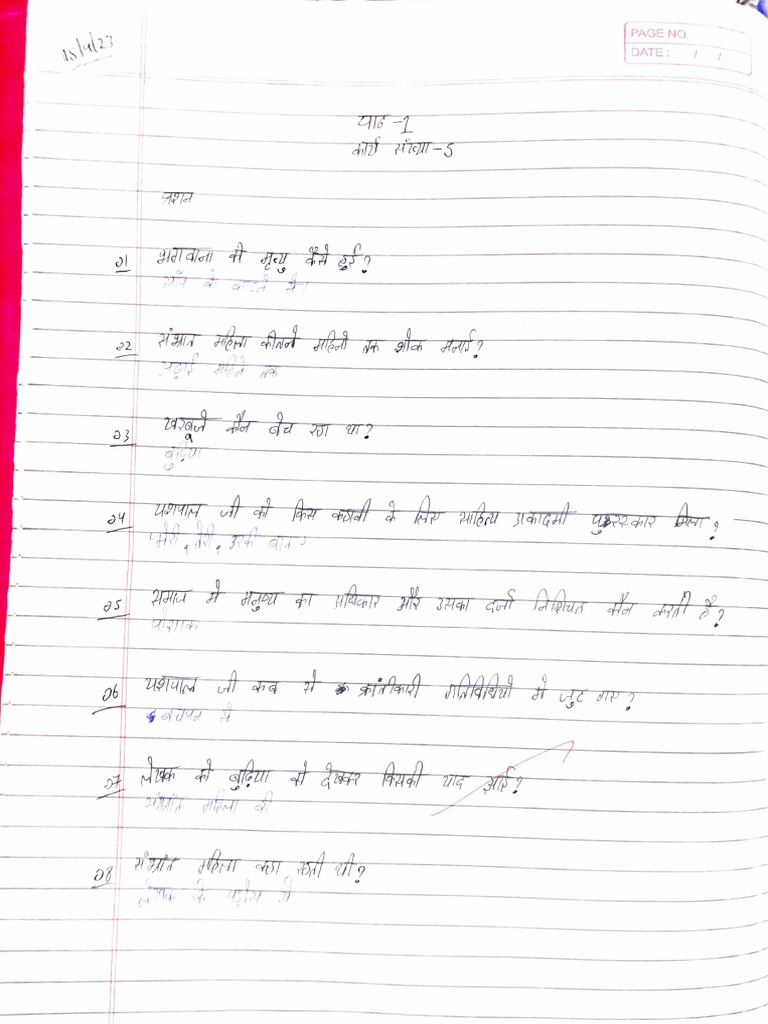 18/4/23
PAGE NO.
DATE: / /
पाठ -1
कार्य संख्या -5
प्रशन
Q1 भगवाना की मृत्यु कैसे हुई?
साँप के काटने से।
Q2 संभ्रात महिला कीतने महिनो तक शोक मनाई?
अढ़ाई महिने तक
Q3 खरबूजे कौन बेच रहा था?
बुढ़िया
Q4 यशपाल जी को किस कहानी के लिए साहित्य अकादमी पुरस्कार मिला?
'मेरी, तेरी, उसकी बात'
Q5 समाज मे मनुष्य का अधिकार और उसका दर्जा निशिचत कौन करती है?
पोशाक
Q6 यशपाल जी कब से क्रांतीकारी गतिविधियो मे जुट गए?
बचपन से
Q7 लेखक को बुढ़िया को देखकर किसकी याद आई?
संभ्रांत महिला की
Q8 संभ्रांत महिला कहा रहती थी?
लेखक के पड़ोस मे